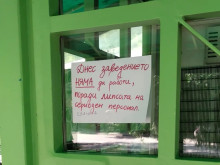 Днес заведението
НЯМА да работи,
поради липсата на
обучен персонал.